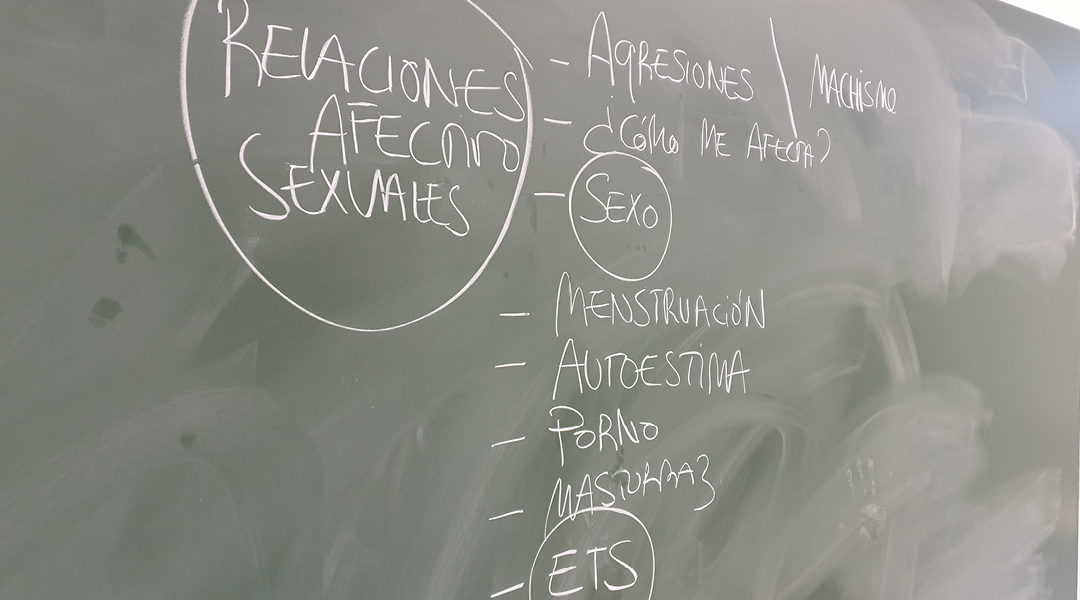 RELACIONES
AFECTIVO
SEXUALES
- AGRESIONES / MACHISMO
- ¿CÓMO ME AFECTA?
- SEXO
- MENSTRUACIÓN
- AUTOESTIMA
- PORNO
- ETS